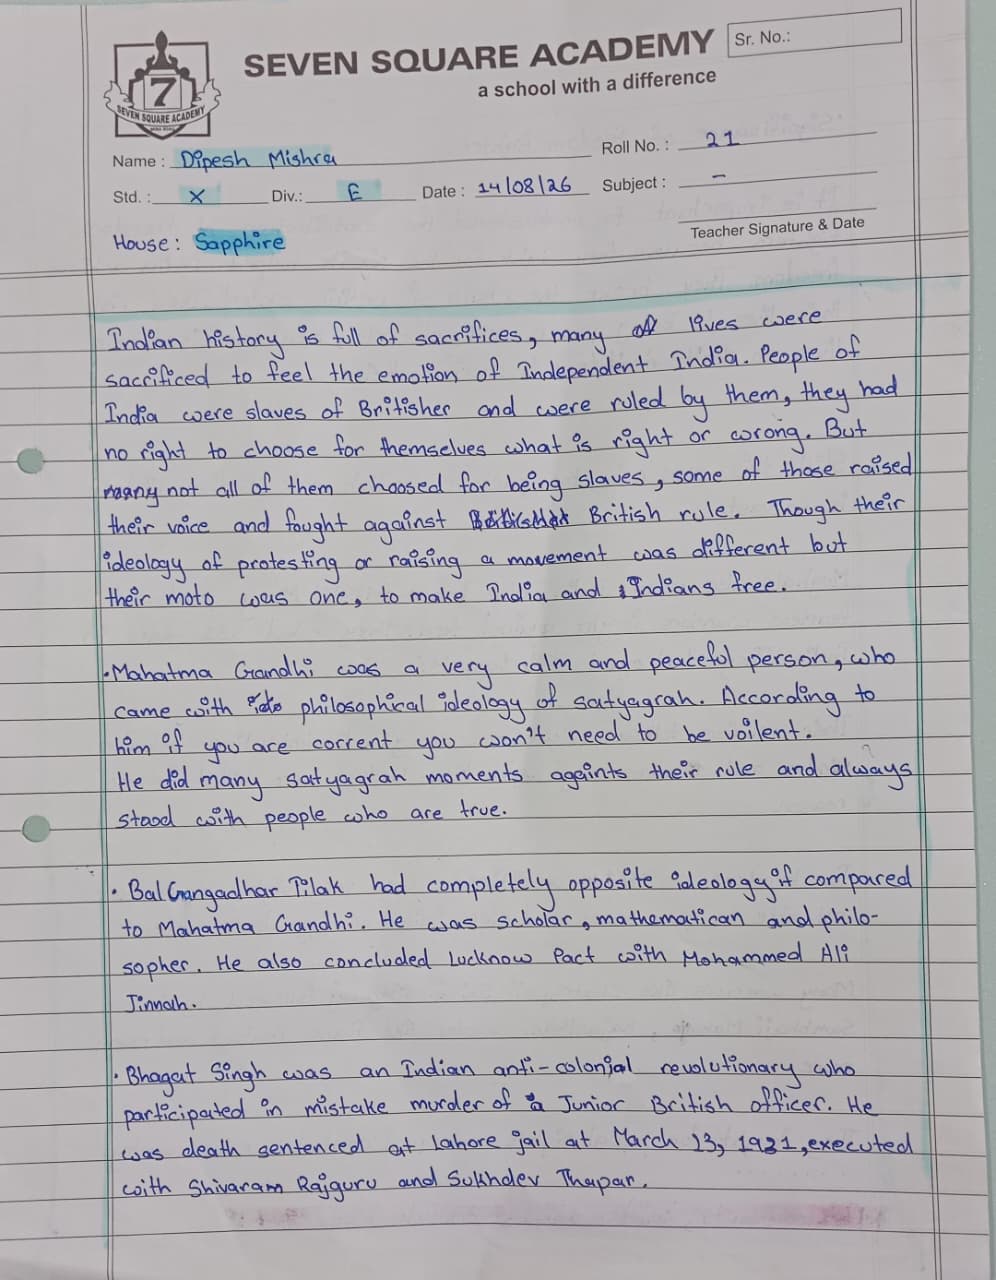 SEVEN SQUARE ACADEMY
a school with a difference
Sr. No.:
7
SEVEN SQUARE ACADEMY
Name : Dipesh Mishra
Roll No. : 21
Std. : X Div.: E Date : 14/08/26 Subject : -
House : Sapphire
Teacher Signature & Date
Indian history is full of sacrifices, many lives were
sacrificed to feel the emotion of Independent India. People of
India were slaves of Britisher and were ruled by them, they had
no right to choose for themselves what is right or wrong. But
not all of them choosed for being slaves, some of those raised
their voice and fought against British rule. Though their
ideology of protesting or raising a movement was different but
their moto was one, to make India and Indians free.
• Mahatma Gandhi was a very calm and peaceful person, who
came with philosophical ideology of satyagrah. According to
him if you are corrent you won't need to be voilent.
He did many satyagrah moments againts their rule and always
stood with people who are true.
• Bal Gangadhar Tilak had completely opposite ideology if compared
to Mahatma Gandhi. He was scholar, mathematican and philo-
sopher. He also concluded Lucknow Pact with Mohammed Ali
Jinnah.
• Bhagat Singh was an Indian anti-colonial revolutionary who
participated in mistake murder of a Junior British officer. He
was death sentenced at Lahore jail at March 23, 1931, executed
with Shivaram Rajguru and Sukhdev Thapar.